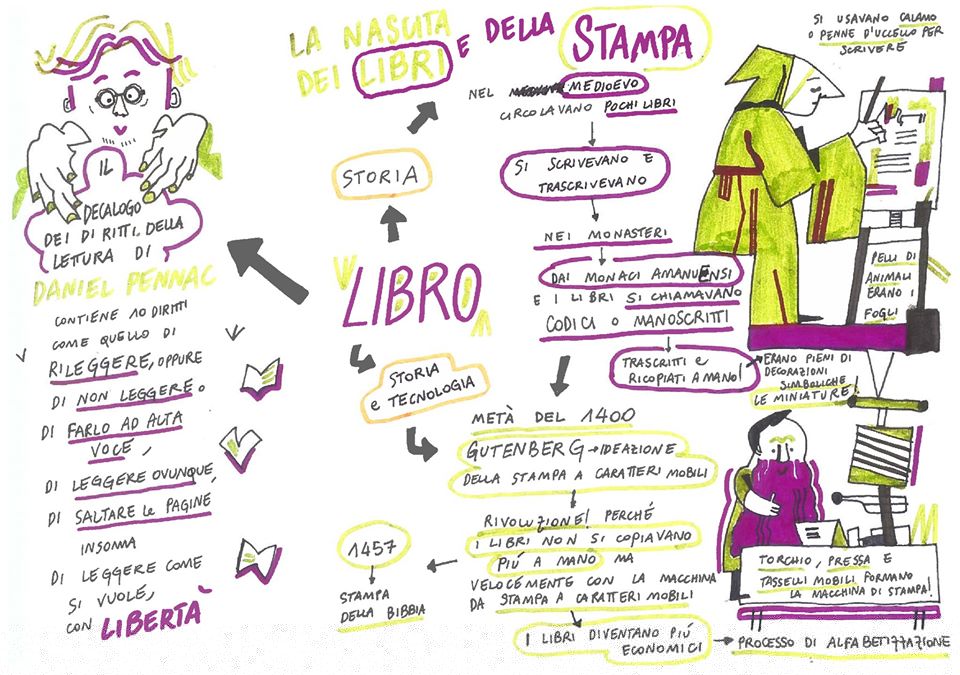 LA NASCITA
DEI LIBRI E DELLA STAMPA
NEL MEDIOEVO
CIRCOLAVANO POCHI LIBRI
SI SCRIVEVANO E
TRASCRIVEVANO
NEI MONASTERI
DAI MONACI AMANUENSI
E I LIBRI SI CHIAMAVANO
CODICI O MANOSCRITTI
TRASCRITTI e
RICOPIATI A MANO!
ERANO PIENI DI
DECORAZIONI
SIMBOLICHE
LE MINIATURE!
SI USAVANO CALAMO
O PENNE D'UCCELLO PER
SCRIVERE
PELLI DI
ANIMALI
ERANO I
FOGLI
STORIA
LIBRO
STORIA
e TECNOLOGIA
METÀ DEL 1400
GUTENBERG → IDEAZIONE
DELLA STAMPA A CARATTERI MOBILI
RIVOLUZIONE! PERCHÉ
I LIBRI NON SI COPIAVANO
PIÚ A MANO MA
VELOCÉMENTE CON LA MACCHINA
DA STAMPA A CARATTERI MOBILI
1457
STAMPA
DELLA BIBBIA
I LIBRI DIVENTANO PIÚ
ECONOMICI
PROCESSO DI ALFABETIZZAZIONE
TORCHIO, PRESSA E
TASSELLI MOBILI FORMANO
LA MACCHINA DI STAMPA!
IL
DECALOGO
DEI DIRITTI DELLA
LETTURA DI
DANIEL PENNAC
CONTIENE 10 DIRITTI
COME QUELLO DI
RILEGGERE, OPPURE
DI NON LEGGERE O
DI FARLO AD ALTA
VOCE,
DI LEGGERE OVUNQUE
DI SALTARE le PAGINE,
INSOMMA
DI LEGGERE COME
SI VUOLE,
CON LIBERTÀ